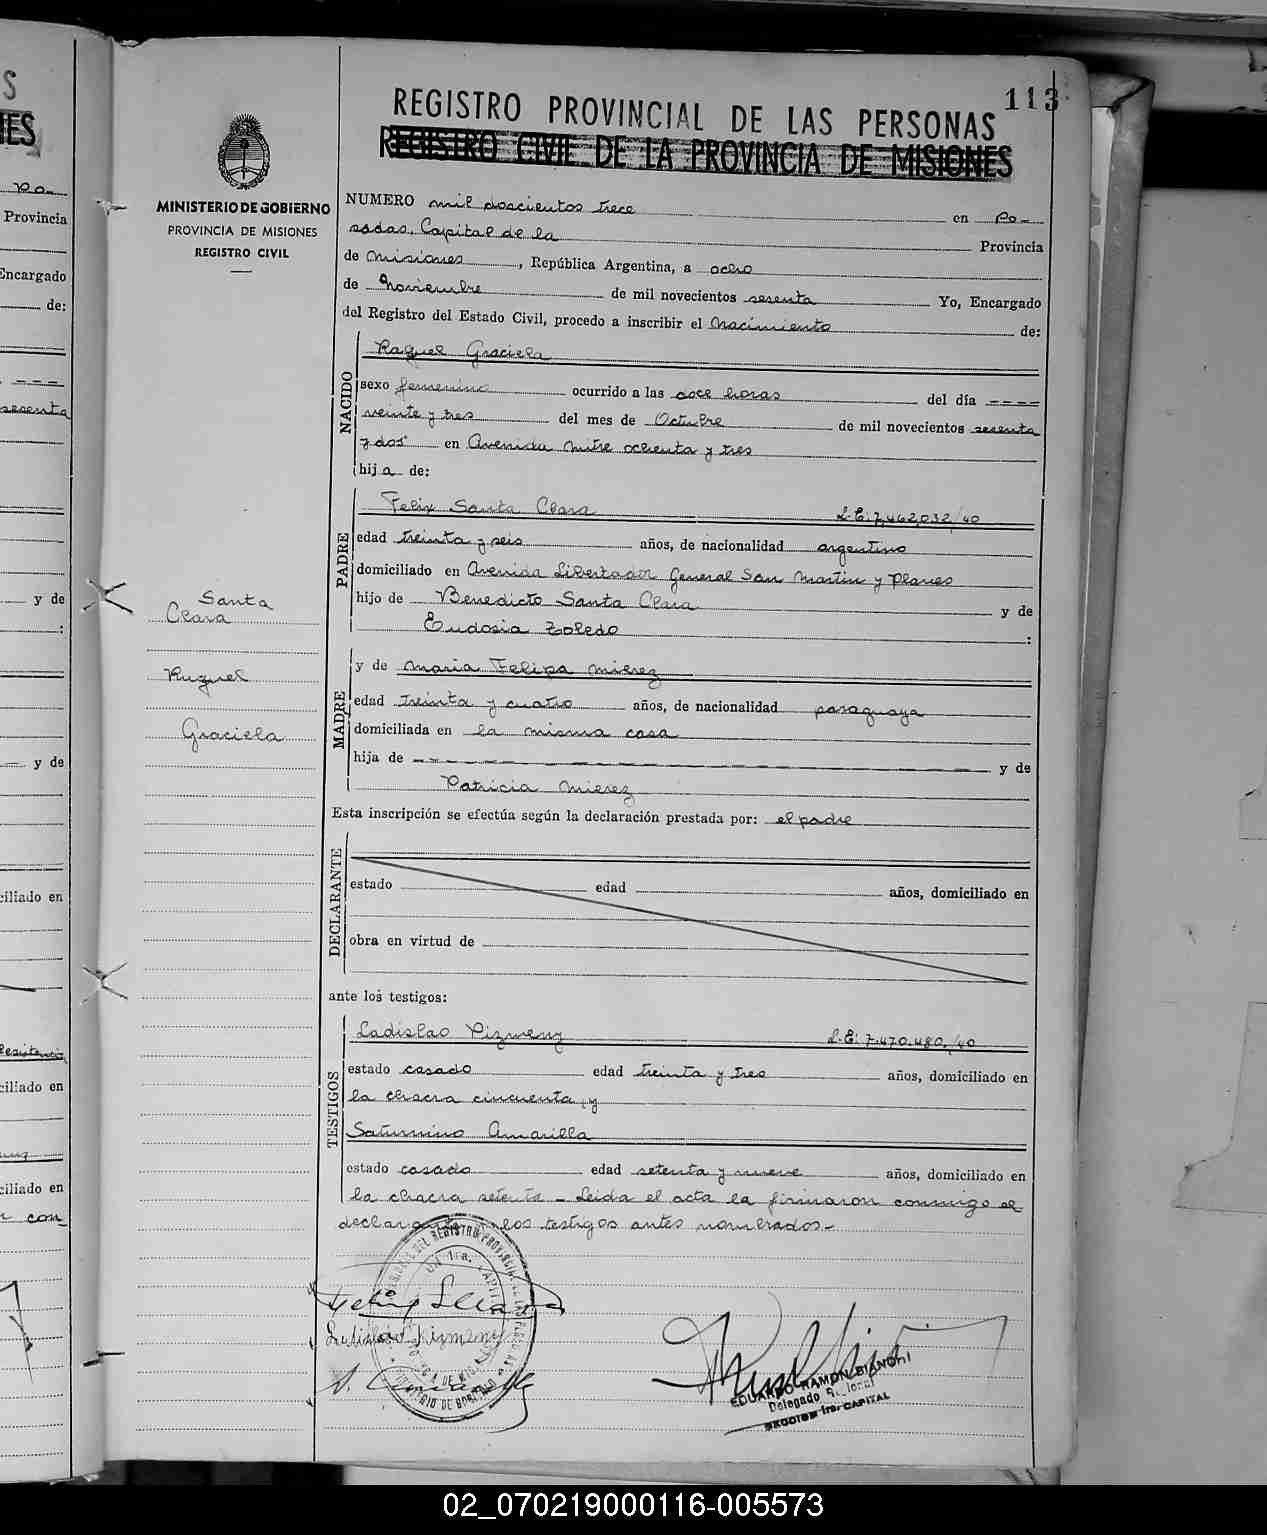 113
REGISTRO PROVINCIAL DE LAS PERSONAS
REGISTRO CIVIL DE LA PROVINCIA DE MISIONES
MINISTERIO DE GOBIERNO
PROVINCIA DE MISIONES
REGISTRO CIVIL
NUMERO mil doscientos trece en Po-
sadas, Capital de la Provincia
de Misiones, República Argentina, a ocho
de Noviembre de mil novecientos sesenta Yo, Encargado
del Registro del Estado Civil, procedo a inscribir el Nacimiento de:
NACIDO
Raquel Graciela
sexo femenino ocurrido a las doce horas del día ----
veinte y tres del mes de Octubre de mil novecientos sesenta
y dos en Avenida Mitre ochenta y tres
hija de:
PADRE
Felix Santa Clara L.E. 7,462,032/40
edad treinta y seis años, de nacionalidad argentino
domiciliado en Avenida Libertador General San Martin y Planes
hijo de Benedicto Santa Clara y de
Eudosia Toledo :
Santa
Clara
Raquel
Graciela
MADRE
y de Maria Felipa Mierez
edad treinta y cuatro años, de nacionalidad paraguaya
domiciliada en la misma casa
hija de -- y de
Patricia Mierez
Esta inscripción se efectúa según la declaración prestada por: el padre
DECLARANTE
estado edad años, domiciliado en
obra en virtud de
ante los testigos:
TESTIGOS
Ladislao Pizmeny L.E. 7.470.480/40
estado casado edad treinta y tres años, domiciliado en
la chacra cincuenta y
Saturnino Amarilla
estado casado edad setenta y nueve años, domiciliado en
la chacra setenta - Leida el acta la firmaron conmigo el
declarante y los testigos antes nombrados.-
EDUARDO RAMON BIANCHI
Delegado Seccional
SECCION 1ra. CAPITAL
02_070219000116-005573